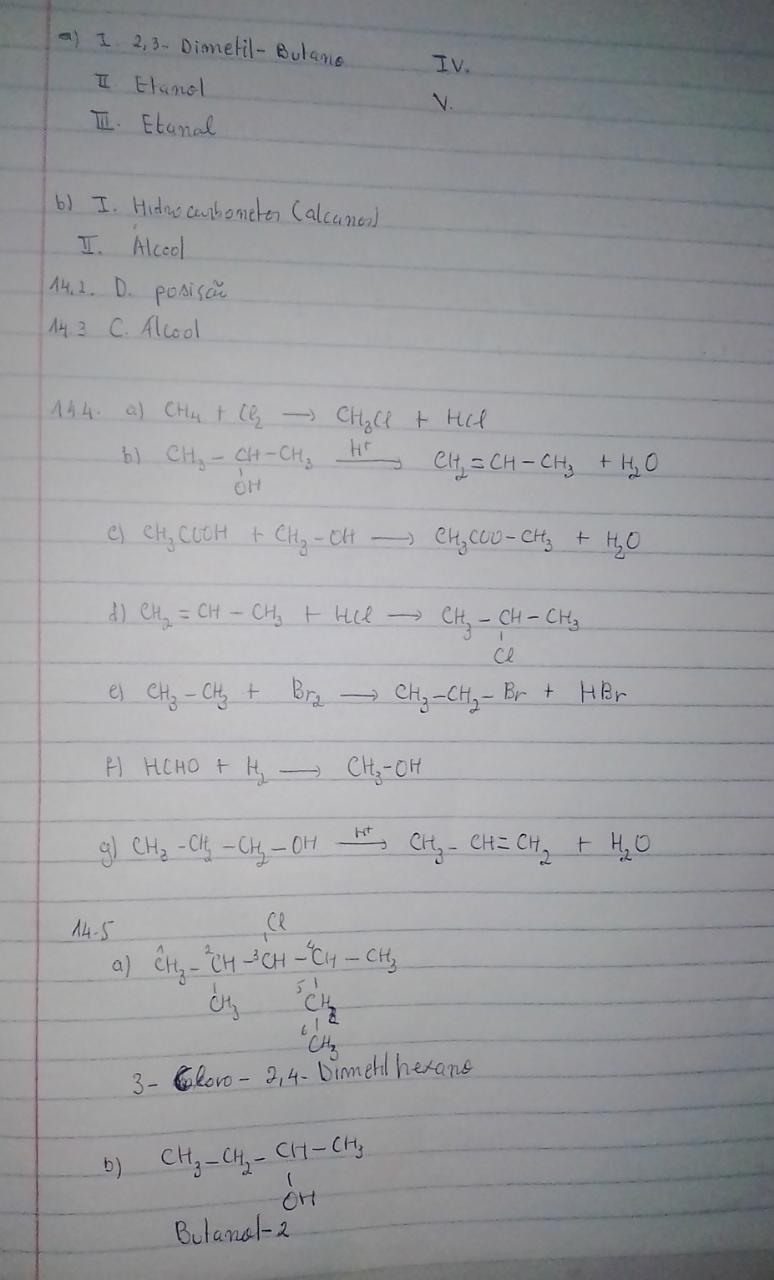 a) I. 2,3- Dimetil- Butano IV.
II Etanol V.
III. Etanal
b) I. Hidrocarbonetos (alcanos)
II. Álcool
14.2. D. posição
14.3 C. Álcool
14.4. a) CH4 + Cl2 → CH3Cl + HCl
b) CH3 – CH – CH3 H+ → CH2 = CH – CH3 + H2O
OH
c) CH3COOH + CH3 – OH → CH3COO – CH3 + H2O
d) CH2 = CH – CH3 + HCl → CH3 – CH – CH3
Cl
e) CH3 – CH3 + Br2 → CH3 – CH2 – Br + HBr
f) HCHO + H2 → CH3 – OH
g) CH3 – CH2 – CH2 – OH H+ → CH3 – CH = CH2 + H2O
14.5 Cl
a) 1CH3 – 2CH – 3CH – 4CH – CH3
CH3 5CH2
6CH3
3- Cloro – 2,4- Dimetil hexano
b) CH3 – CH2 – CH – CH3
OH
Butanol-2